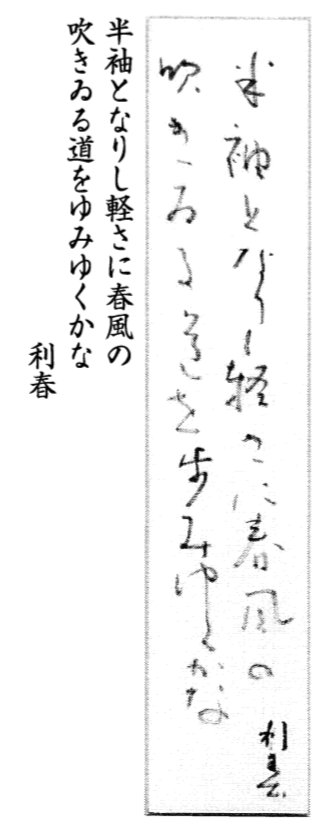 半袖となりし軽さに春風の
吹きゐる道を歩みゆくかな
利春
半袖となりし軽さに春風の
吹きゐる道をゆみゆくかな
利春